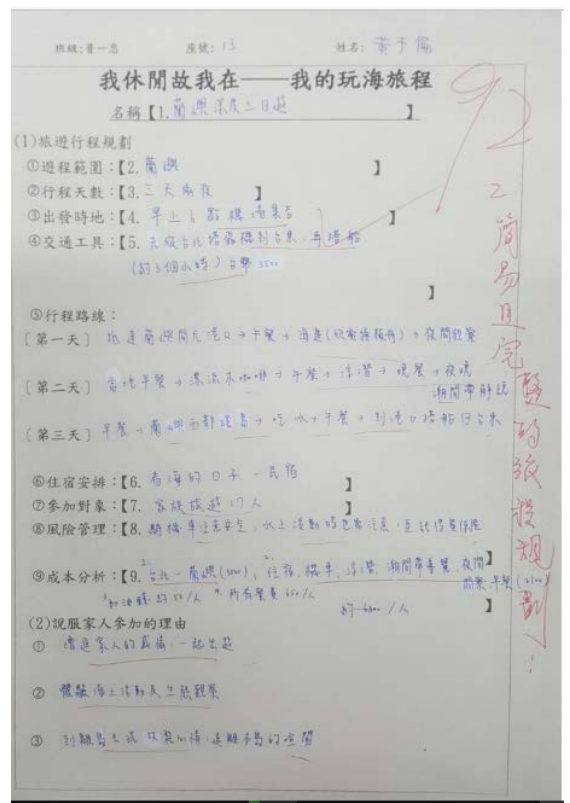 班級:普一忠 座號: 13 姓名:
我休閒故我在——我的玩海旅程
名稱【1. 蘭嶼深度三日遊】
92
(1)旅遊行程規劃
①遊程範圍:【2. 蘭嶼】
②行程天數:【3. 三天兩夜】
③出發時地:【4. 早上6點機場集合】
④交通工具:【5. 先從台北搭飛機到台東,再搭船
(約3個小時)台幣3500
】
⑤行程路線:
〔第一天〕抵達蘭嶼開元港口→午餐→海邊→夜間觀察
〔第二天〕當地早餐→漂流木咖啡→午餐→浮潛→晚餐→夜晚
潮間帶解說
〔第三天〕早餐→蘭嶼西部環島→吃冰→午餐→到港口搭船回台東
⑥住宿安排:【6. 看海的日子-民宿】
⑦參加對象:【7. 家族旅遊17人】
⑧風險管理:【8. 騎機車注意安全,水上活動時也要注意,
⑨成本分析:【9. 台北-蘭嶼(3500),住宿,機車,浮潛,潮間帶導覽,夜間
觀察,早餐(2500)】
加油錢約50/人 所有餐費650/人
約6700/人 】
(2)說服家人參加的理由
① 增進家人的感情,一起出遊
② 體驗海上活動及生態觀察
③ 到離島去玩 放鬆心情,遠離本島的喧鬧
簡易且完整的旅程規劃!